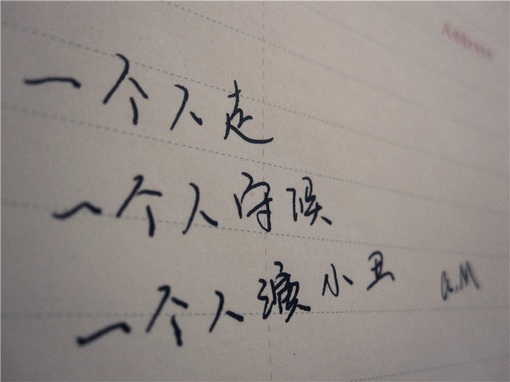 一个人走
一个人守候
一个人演小丑
a.M